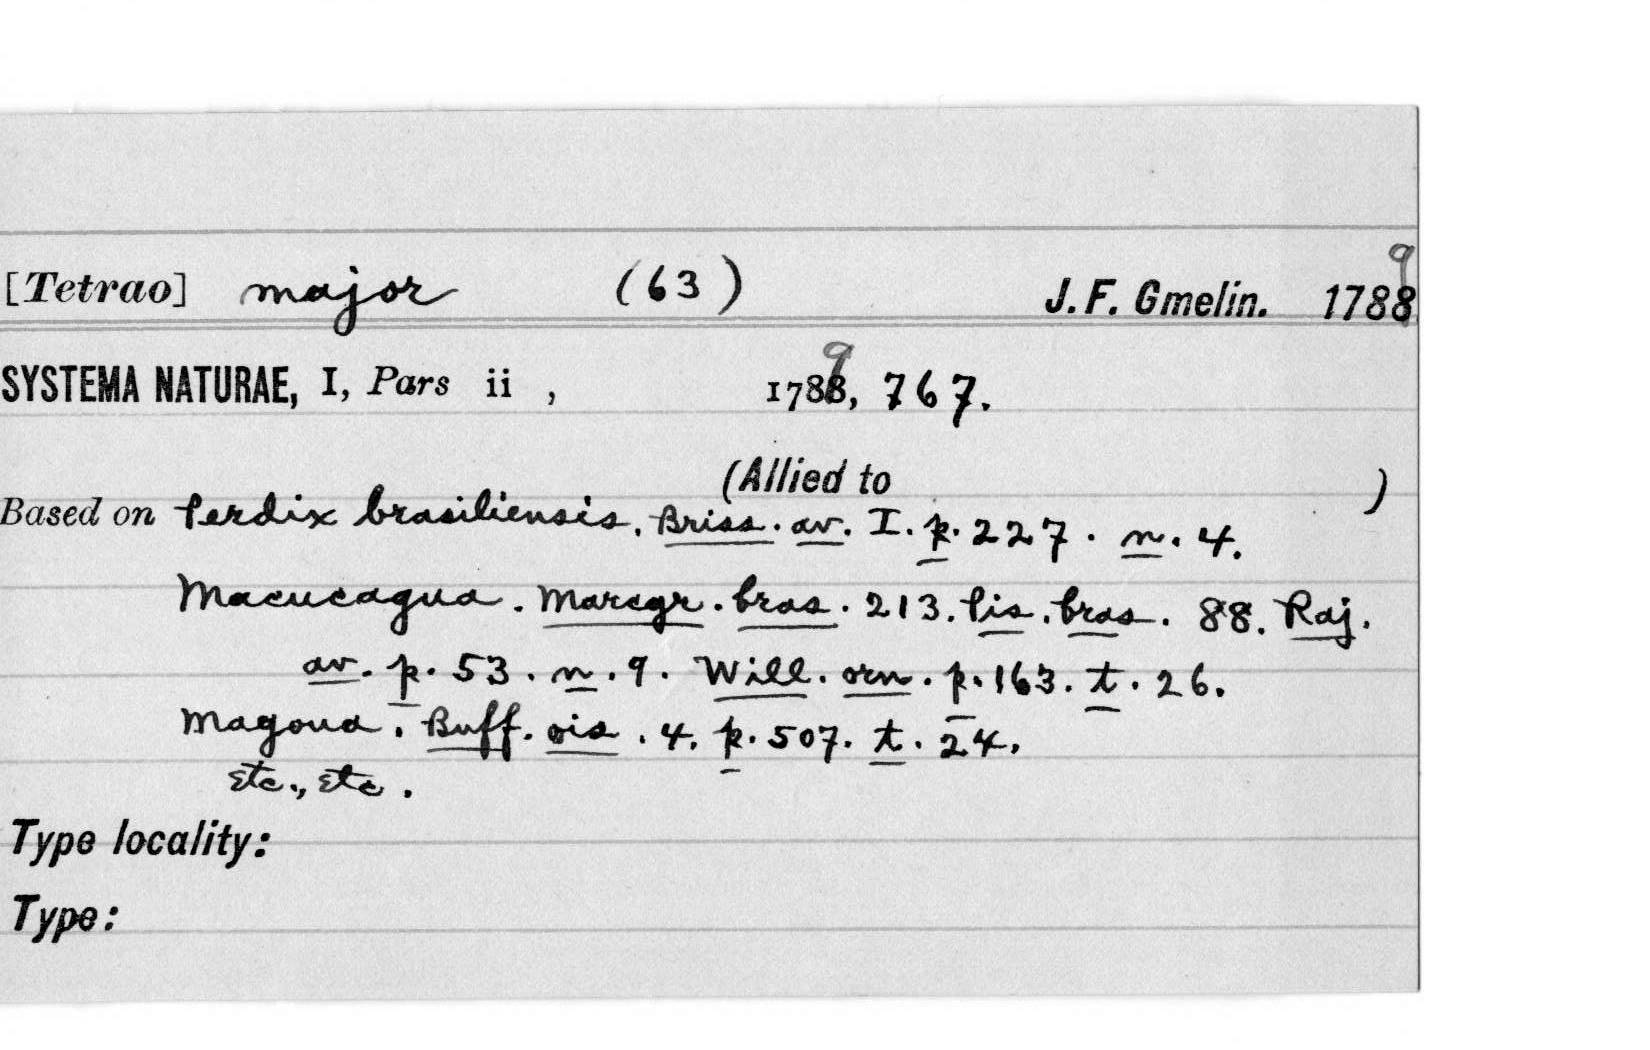 [Tetrao] major (63) J. F. Gmelin. 1789
SYSTEMA NATURAE, I, Pars ii , 1789, 767.
(Allied to )
Based on Perdix brasiliensis. Briss. av. I. p. 227. n. 4.
Macucagua. Marcgr. bras. 213. Pis. bras. 88. Raj.
av. p. 53. n. 9. Will. orn. p. 163. t. 26.
Magoua. Buff. ois. 4. p. 507. t. 24.
etc., etc.
Type locality:
Type: